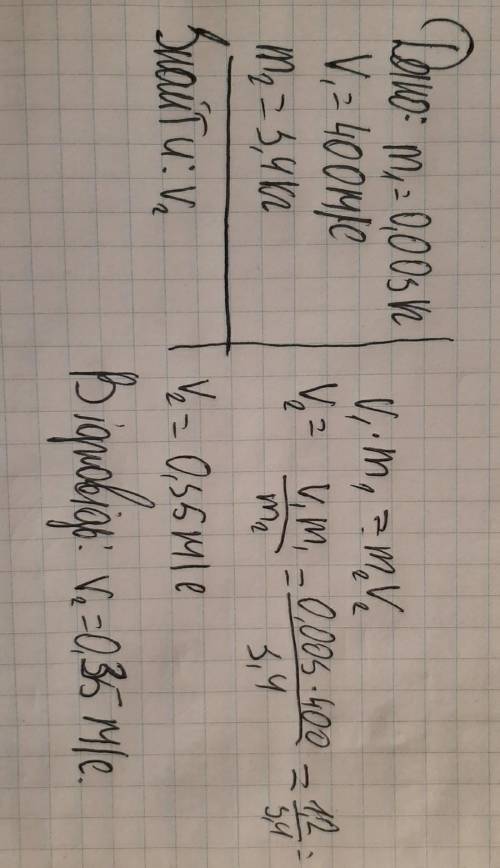 Дано: m₁ = 0,003 кг
V₁ = 400 м/с
m₂ = 3,4 кг
Знайти: V₂
V₁ · m₁ = m₂V₂
V₂ = V₁m₁/m₂ = 0,003 · 400/3,4 = 1,2/3,4 =
V₂ = 0,35 м/с
Відповідь: V₂ = 0,35 м/с.